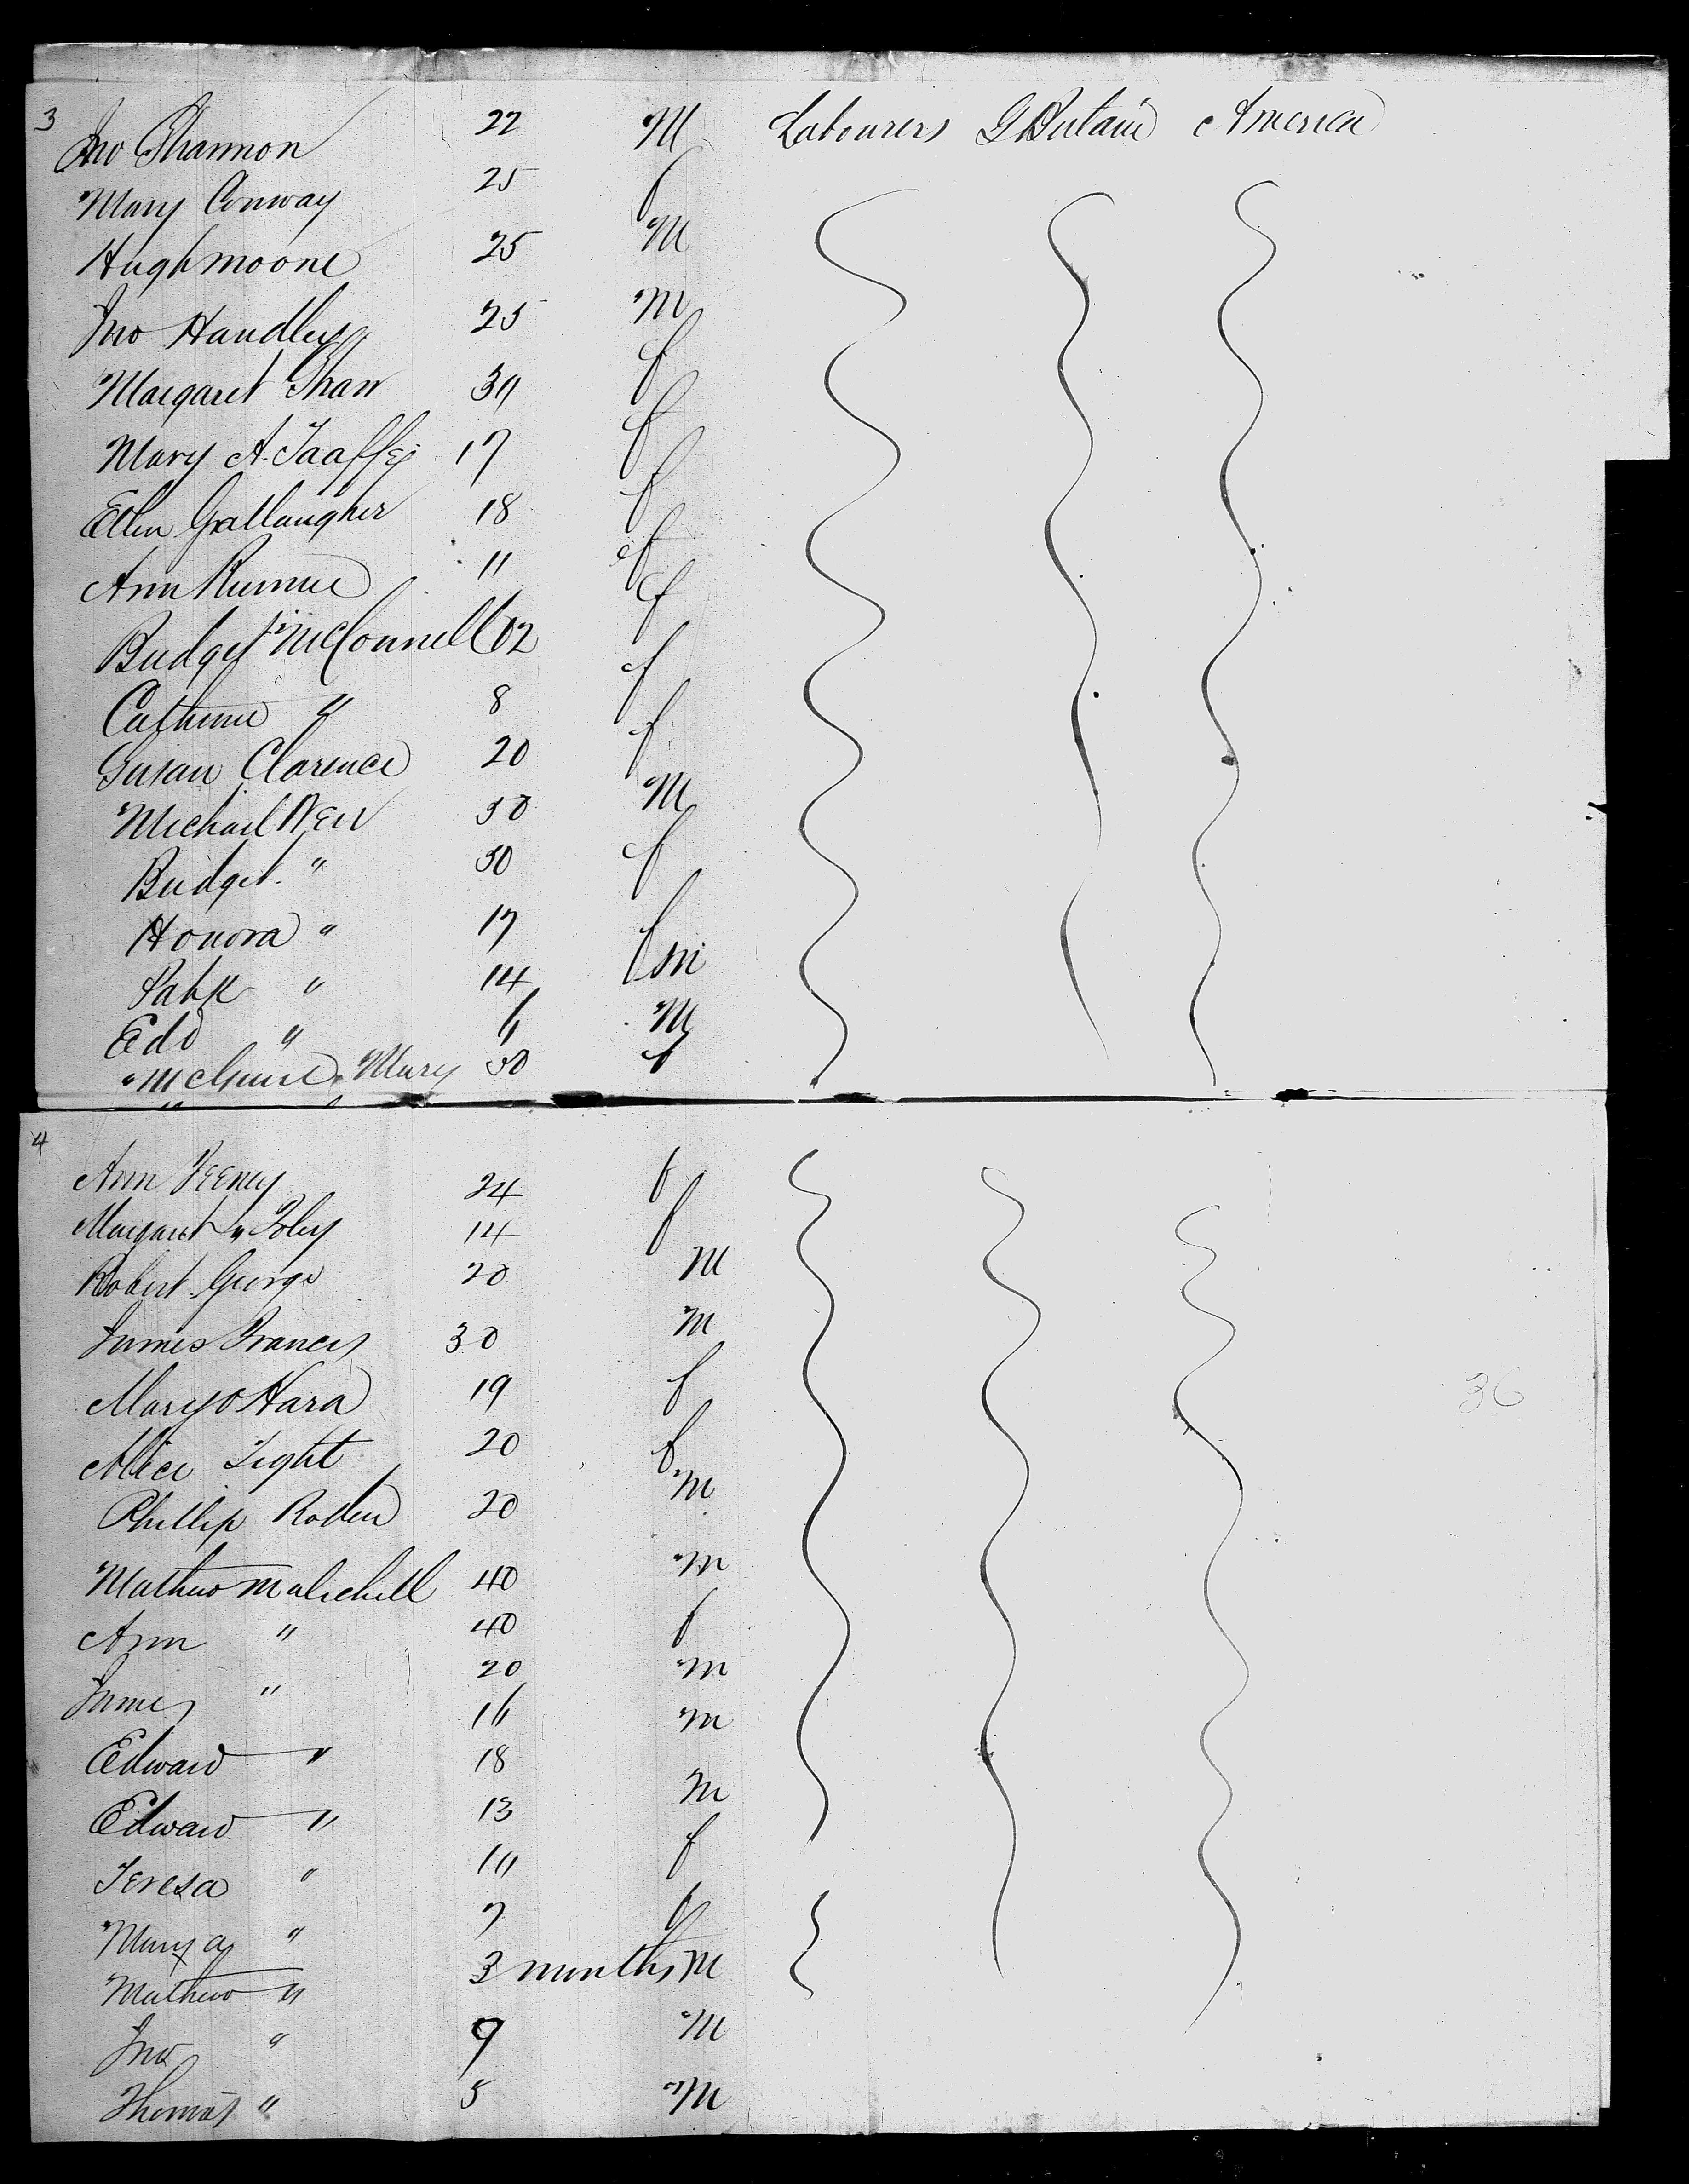 3
Jno Shannon 22 M Labourers G Britain America
Mary Conway 25 f
Hugh Moone 25 M
Jno Handley 25 M
Margaret Shaw 30 f
Mary A. Taaffe 17 f
Ellen Gallaugher 18 f
Ann 11 f
Bridget McConnell 62 f
Catherine " 8 f
Susan Clarence 20 f
Michael Weir 50 M
Bridget " 50 f
Honora " 17 f
Patk " 14 m
Edd " 6 M
McGuire Mary 50 f
4
Ann Feeney 24 f
Margaret " Foley 14 f
Robert George 20 M
James Francis 30 M
Mary O Hara 19 f
Alice Tight 20 f
Phillip Roden 20 M
Mathew 40 M
Ann " 40 f
James " 20 M
16 M
Edward " 18
Edward " 13 M
Teresa " 11 f
Mary a " 7 f
Mathew " 3 months M
Jno " 9 M
Thomas " 5 M
36